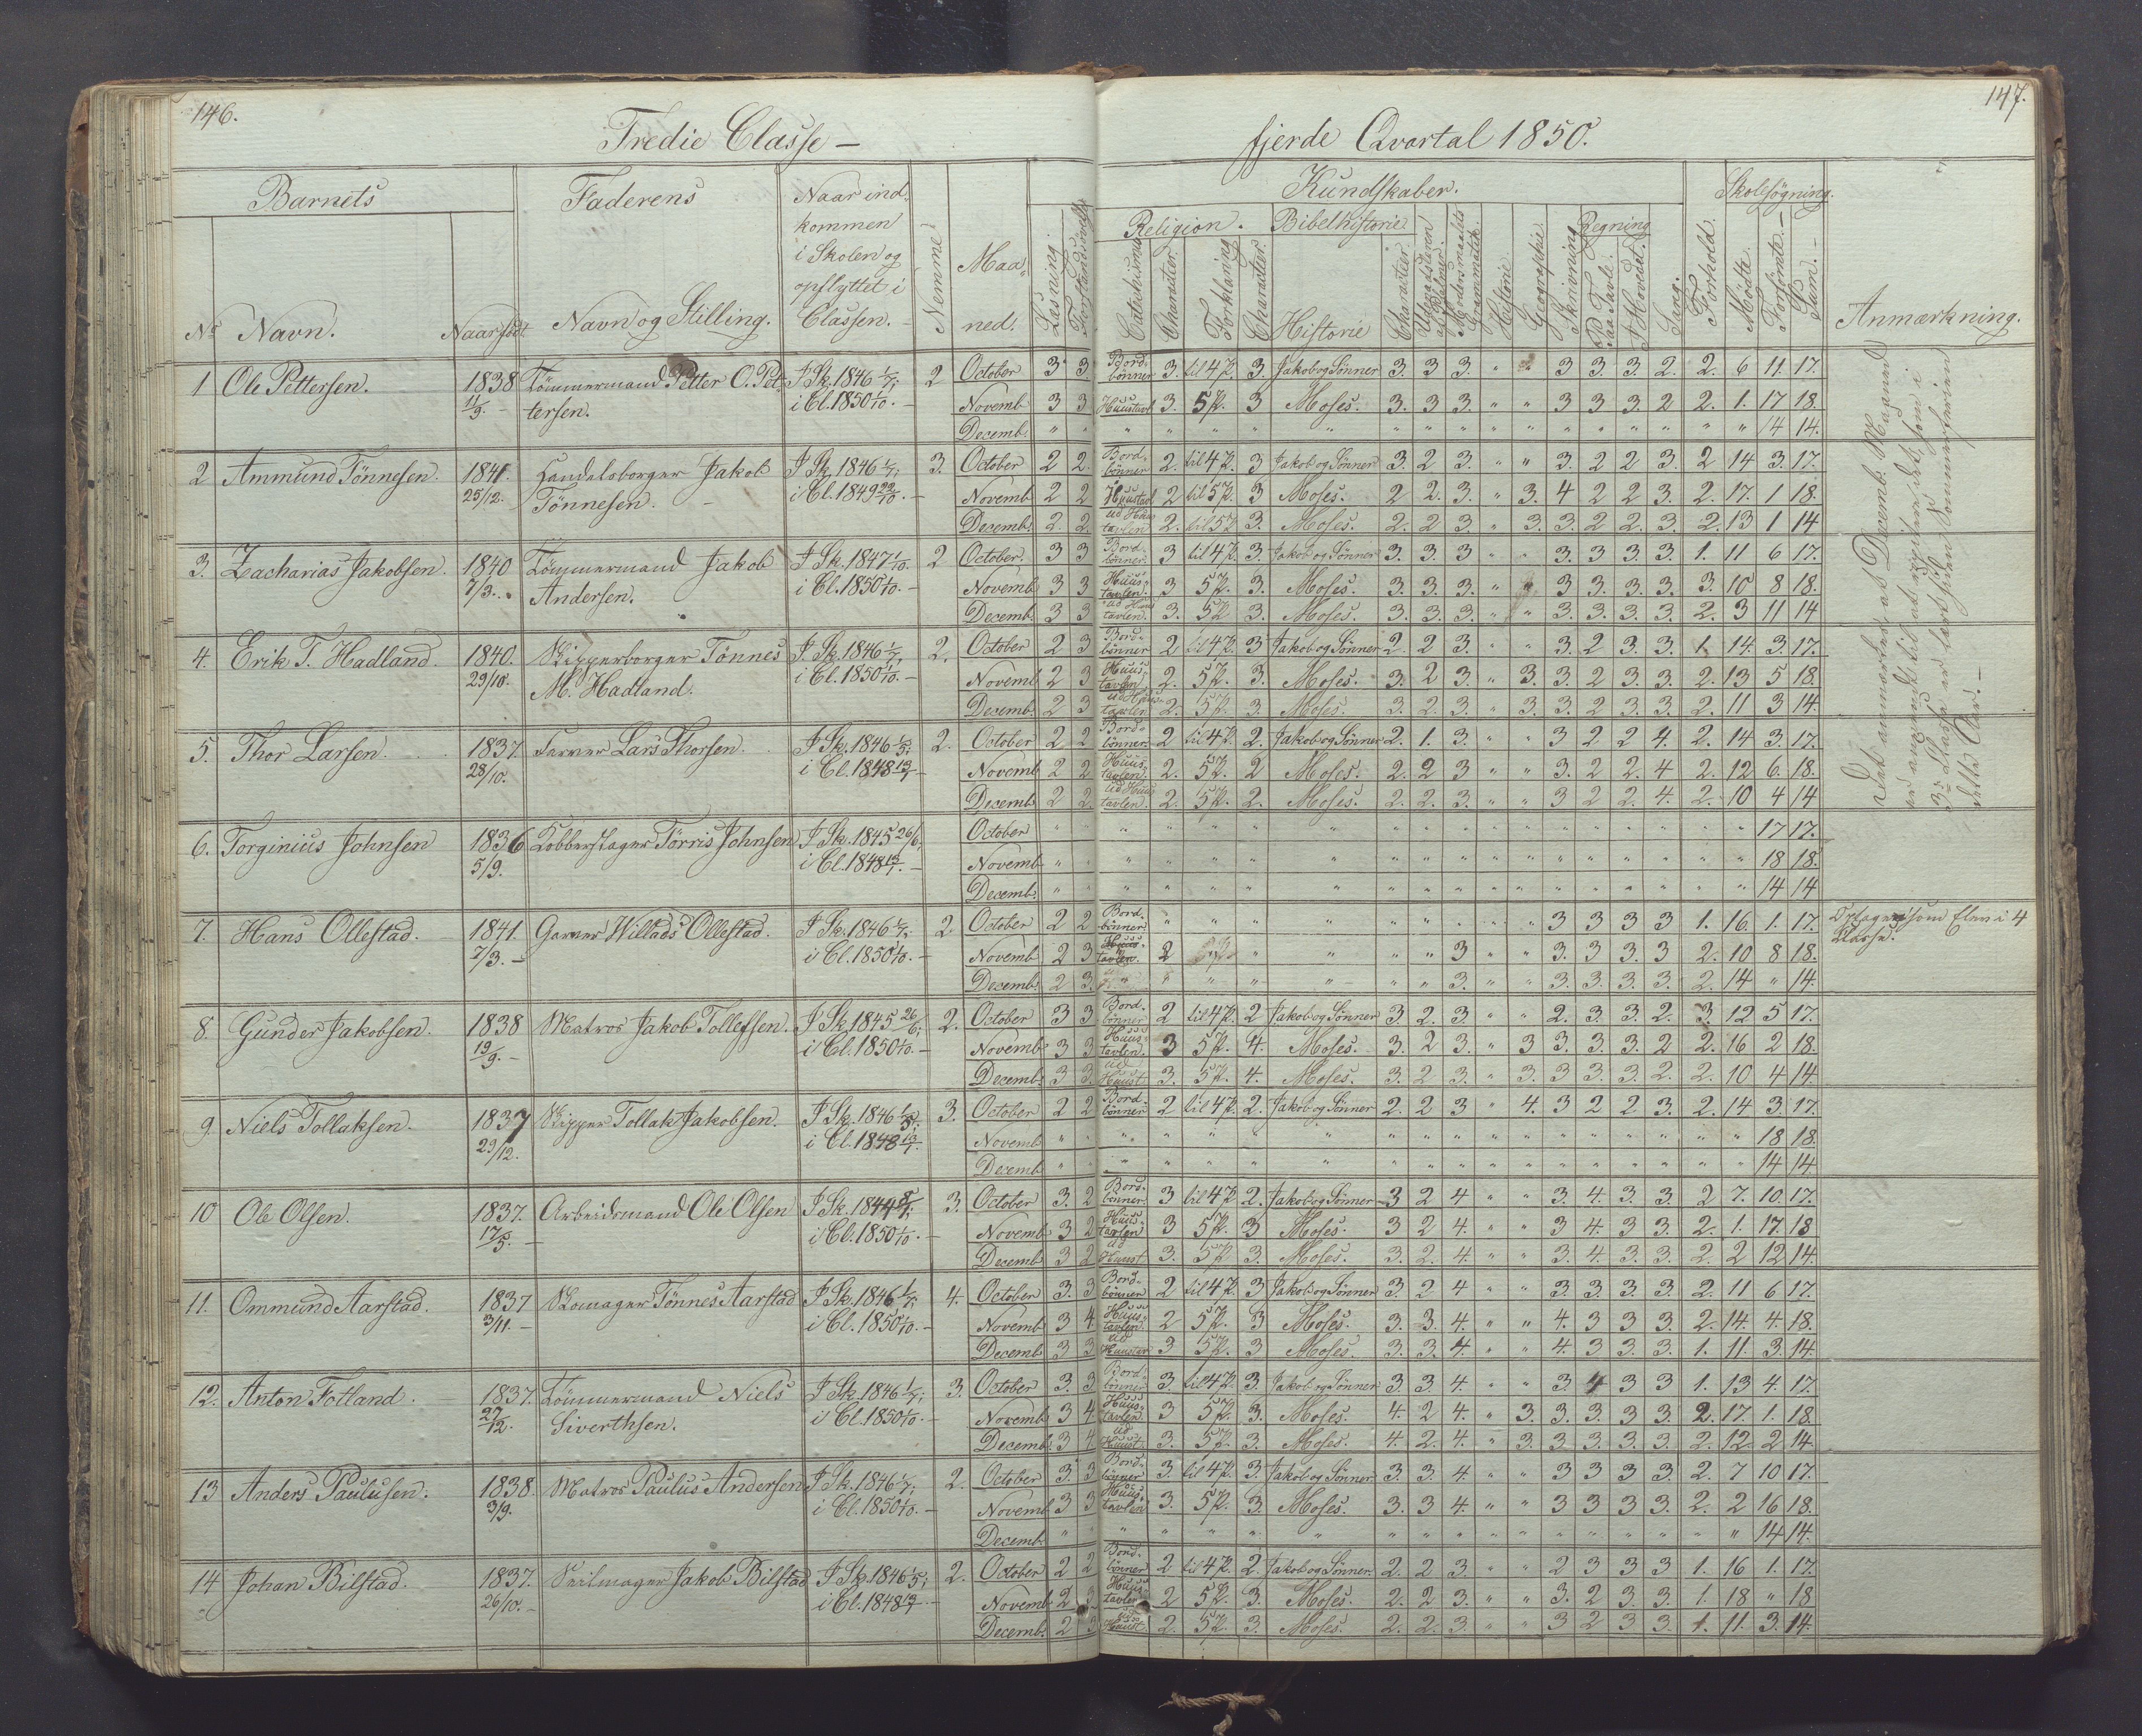 146.
147.
Tredie Classe —
fjerde Qvartal 1850.
Barnets
Faderens
Naar ind-
kommen
i Skolen og
opflyttet i
Classen.
Nemme
Maa-
ned.
Kundskaber.
Skolesøgning.
Læsning
Religion.
Bibelhistorie
Regning
Catechismus
Character.
Forklaring
Character.
Historie
Character.
Modersmaalets
Grammatik.
Historie
Geographie.
Skrivning
P. Tavle.
I Hovedet.
Sang.
Forhold.
Mødte.
Forsømte.
Sum.
Anmærkning.
No Navn.
Naar født
Navn og Stilling.
1 Ole Pettersen. 1838 Tømmermand Petter O. Pet- I Sk. 1846 1/7; 2 October 3 3 Bord- 3. til 4 P. 3. Jakob og Sønner 3. 3 3. " " 3 3 3 2. 2. 6 11. 17.
bønner
11/9. tersen. i Cl. 1850 1/10. Novemb 3 3 Huustavl 3. 5 P. 3 Moses. 3. 3 3. " " 3 3 3. 2 2. 1. 17 18.
Decemb. " " " " " " " " " " " " " " " " " " " 14 14.
2 Ammund Tønnesen. 1841. Handelsborger Jakob I Sk. 1846 1/7; 3. October 2 2. Bord- 2. til 4 P. 3 Jakob og Sønner 3. 2 3. " " 3. 2 2 3. 2 14 3. 17.
bønner
25/12. Tønnesen. i Cl. 1849 Novemb 2 2 Huustavl 2 til 5 P. 3 Moses. 2 2. 3. " 3. 4 2 2 3. 2. 17. 1 18.
Decemb. 2. 2. ud Huus 2. til 5 P. 3. Moses. 2. 2 3 " 3. 3. 2 2. 3. 2. 13 1 14
tavlen
3. Zacharias Jakobsen. 1840 Tømmermand Jakob I Sk. 1847 1/10. 2 October. 3 3 Bord- 3 til 4 P. 3 Jakob og Sønner 3. 3. 3 " " 3. 3. 3. 3. 1. 11 6 17.
bønner
7/3. Andersen. i Cl. 1850 1/10. Novemb 3 3 Huus- 3 5 P. 3. Moses. 3. 3. 3. " " 3. 3. 3. 3. 3. 10 8 18.
tavlen.
Decemb. 3 3 ud Huus 3. 5 P 3. Moses. 3. 3. 3. " " 3. 3. 3. 3. 2. 3 11 14
tavlen.
4. Erik T. Hadland. 1840. Skipperborger Tønnes I Sk. 1846 1/7; 2. October 2 3 Bord- 2 til 4 P. 3 Jakob og Sønner 2. 2 3. " " 3. 2 3. 3 1. 14. 3. 17.
bønner
29/10. M. Hadland. i Cl. 1850 1/10. Novemb 2 3 Huus- 2. 5 P. 3. Moses. 3. 2 3. " 3. 3 2 3. 3. 2. 13 5 18.
tavlen
Decemb. 2 3 ud Huus- 2. 5 P. 3. Moses. 3. 2. 3. " 3. 3 2 3. 3. 2. 11 3 14.
tavlen
5. Thor Larsen. 1837. Farver Lars Thorsen. I Sk. 1846 1/5; 2. October 2 2 Bord- 2 til 4 P. 2. Jakob og Sønner 2. 1. 3. " " 3 2 2 4. 2. 14 3. 17.
bønner
28/10. i Cl. 1848 13/7 Novemb 2 2 Huus- 2. 5 P. 2 Moses. 2. 2 3 " " 3. 2 2. 4 2. 12 6. 18.
tavlen
Decemb 2 2. ud Huus 2. 5 P. 2. Moses. 2. 2. 3. " " 3 2 2. 4. 2. 10 4 14
tavlen.
6. Torginius Johnsen 1836 Kobberslager Tørris Johnsen I Sk. 1845 26/6; October " " " " " " " " " " " " " " " " " " " 17 17.
5/9. i Cl. 1848 13/7. Novemb " " " " " " " " " " " " " " " " " " " 18 18.
Decemb. " " " " " " " " " " " " " " " " " " " 14 14
7. Hans Ollestad. 1841. Garver Willads Ollestad. I Sk. 1846 1/7; 2. October 2 2 Bord- " " " " " " " " " 3 3 3 3 1. 16. 1. 17. Optagen som Elev i 4
bønner
Klasse.
7/3. i Cl. 1850 1/10. Novemb 2 3 Huus- 2 " " " " 3 " " 3. 3 3. 3 2. 10 8 18.
tavlen.
Decemb. 2 3. " " " " " " " 3. " " 3. 3. 3. 3. 2. 14 " 14.
8. Gunder Jakobsen. 1838 Matros Jakob Tollefsen. I Sk. 1845 26/6; 2. October 3 3 Bord- 2 til 4 P. 2 Jakob og Sønner 3. 2. 3. " " 2. 3. 3 2. 3. 12 5 17.
bønner
19/9. i Cl. 1850 1/10. Novemb. 3 3 Huus- 3 5 P. 4. Moses. 3. 2 3. " 3 3. 3. 3. 2 2. 16 2 18.
tavlen.
Decemb. 3 3. ud 3. 5 P. 4. Moses. 3. 2 3. " 3. 3 3. 3. 2. 2. 10 4 14.
Huust
9. Niels Tollaksen. 1837 Skipper Tollak Jakobsen. I Sk. 1846 1/5; 3. October 2 2 Bord- 2 til 4 P. 2. Jakob og Sønner 2. 2 3 " 4. 3 2 2 3. 2. 14 3. 17.
bønner
29/12. i Cl. 1848 13/7. Novemb " " " " " " " " " " " " " " " " " " " 18 18.
Decemb " " " " " " " " " " " " " " " " " " " 14 14
10 Ole Olsen. 1837. Arbeidsmand Ole Olsen I Sk. 1844 3. October 3. 2 Bord- 3 til 4 P. 2. Jakob og Sønner 3 2 4 " " 3. 4. 3. 3. 2 7. 10. 17.
bønner
17/5. i Cl. 1850 1/10. Novemb 3 2 Huus- 3 5 P. 3 Moses. 3 2 4. " " 3 4. 3 3. 2. 1. 17. 18
tavlen
Decemb 3 2 ud 3. 5 P 3. Moses. 3. 2. 4. " " 3. 4. 3. 3. 2. 2 12 14.
Huust
11. Ommund Aarstad. 1837 Skomager Tønnes Aarstad I Sk. 1846 1/7; 4. October 3. 3 Bord- 2 til 4 P. 3 Jakob og Sønner 3. 2 4 " " 3. 3. 3. 3. 2. 11 6 17.
bønner
3/11. i Cl. 1850 1/10. Novemb. 3 4 Huus- 2 5 P. 3 Moses. 3. 3. 4. " " 4. 3 3 3. 2. 14. 4. 18.
tavlen
Decemb 3 3 ud 3 5 P. 3 Moses. 3. 3. 4. " " 4. 3 3. 3. 1. 11. 3. 14.
12. Anton Fotland. 1837. Tømmermand Niels I Sk. 1846 1/7; 3. October 3. 3 Bord- 3. til 4 P. 3. Jakob og Sønner 3. 3 4. " " 3. 4 3 3 1. 13 4. 17.
bønner
27/12. Siverthsen. i Cl. 1850 1/10. Novemb 3 4 Huus- 3 5 P. 3. Moses. 4. 2 4. " 3. 3. 3. 3 3. 2. 17. 1. 18.
tavlen.
Decemb. 3 4. ud 3. 5 P. 3. Moses. 4. 2. 4. " 3. 3 3. 3. 3. 2. 12. 2 14.
Huust.
13 Anders Paulusen. 1838. Matros Paulus Andersen I Sk. 1846 1/7; 2. October 3. 3 Bord- 3. til 4 P. 3. Jakob og Sønner 3. 3. 4. " " 3 3 3 3. 2. 7 10 17.
bønner
3/9. i Cl. 1850 1/10. Novemb 3 3 Huus- 3. 5 P. 3. Moses. 3. 3 4. " " 3 3 3 3. 2. 2 16 18.
tavlen
Decemb " " " " " " " " " " " " " " " " " " " 14 14.
14 Johan Bilstad. 1837. Seilmager Jakob Bilstad I Sk. 1846 1/5; 2. October 2 2 Bord- 2 til 4 P. 2. Jakob og Sønner. 2. 2 3 " " 2 3 3 3 1. 16 1. 17.
bønner
26/10. i Cl. 1848 13/7 Novemb 2 3 Huus- 2 5 P. 3. Moses. 2. 2 3. " " 3. 2 3. 3. 1. 18 " 18
tavlen
Decemb. 2 3 2. 5 P. 3. Moses. 2. 2. 3. " " 3 2 3 3. 1. 11. 3. 14.
Huust.
Det anmærkes, at Decemb. Maaned
er anvendt til at repetere det, som i
3die Classe er lært siden Sommerferien
dette Aar. —